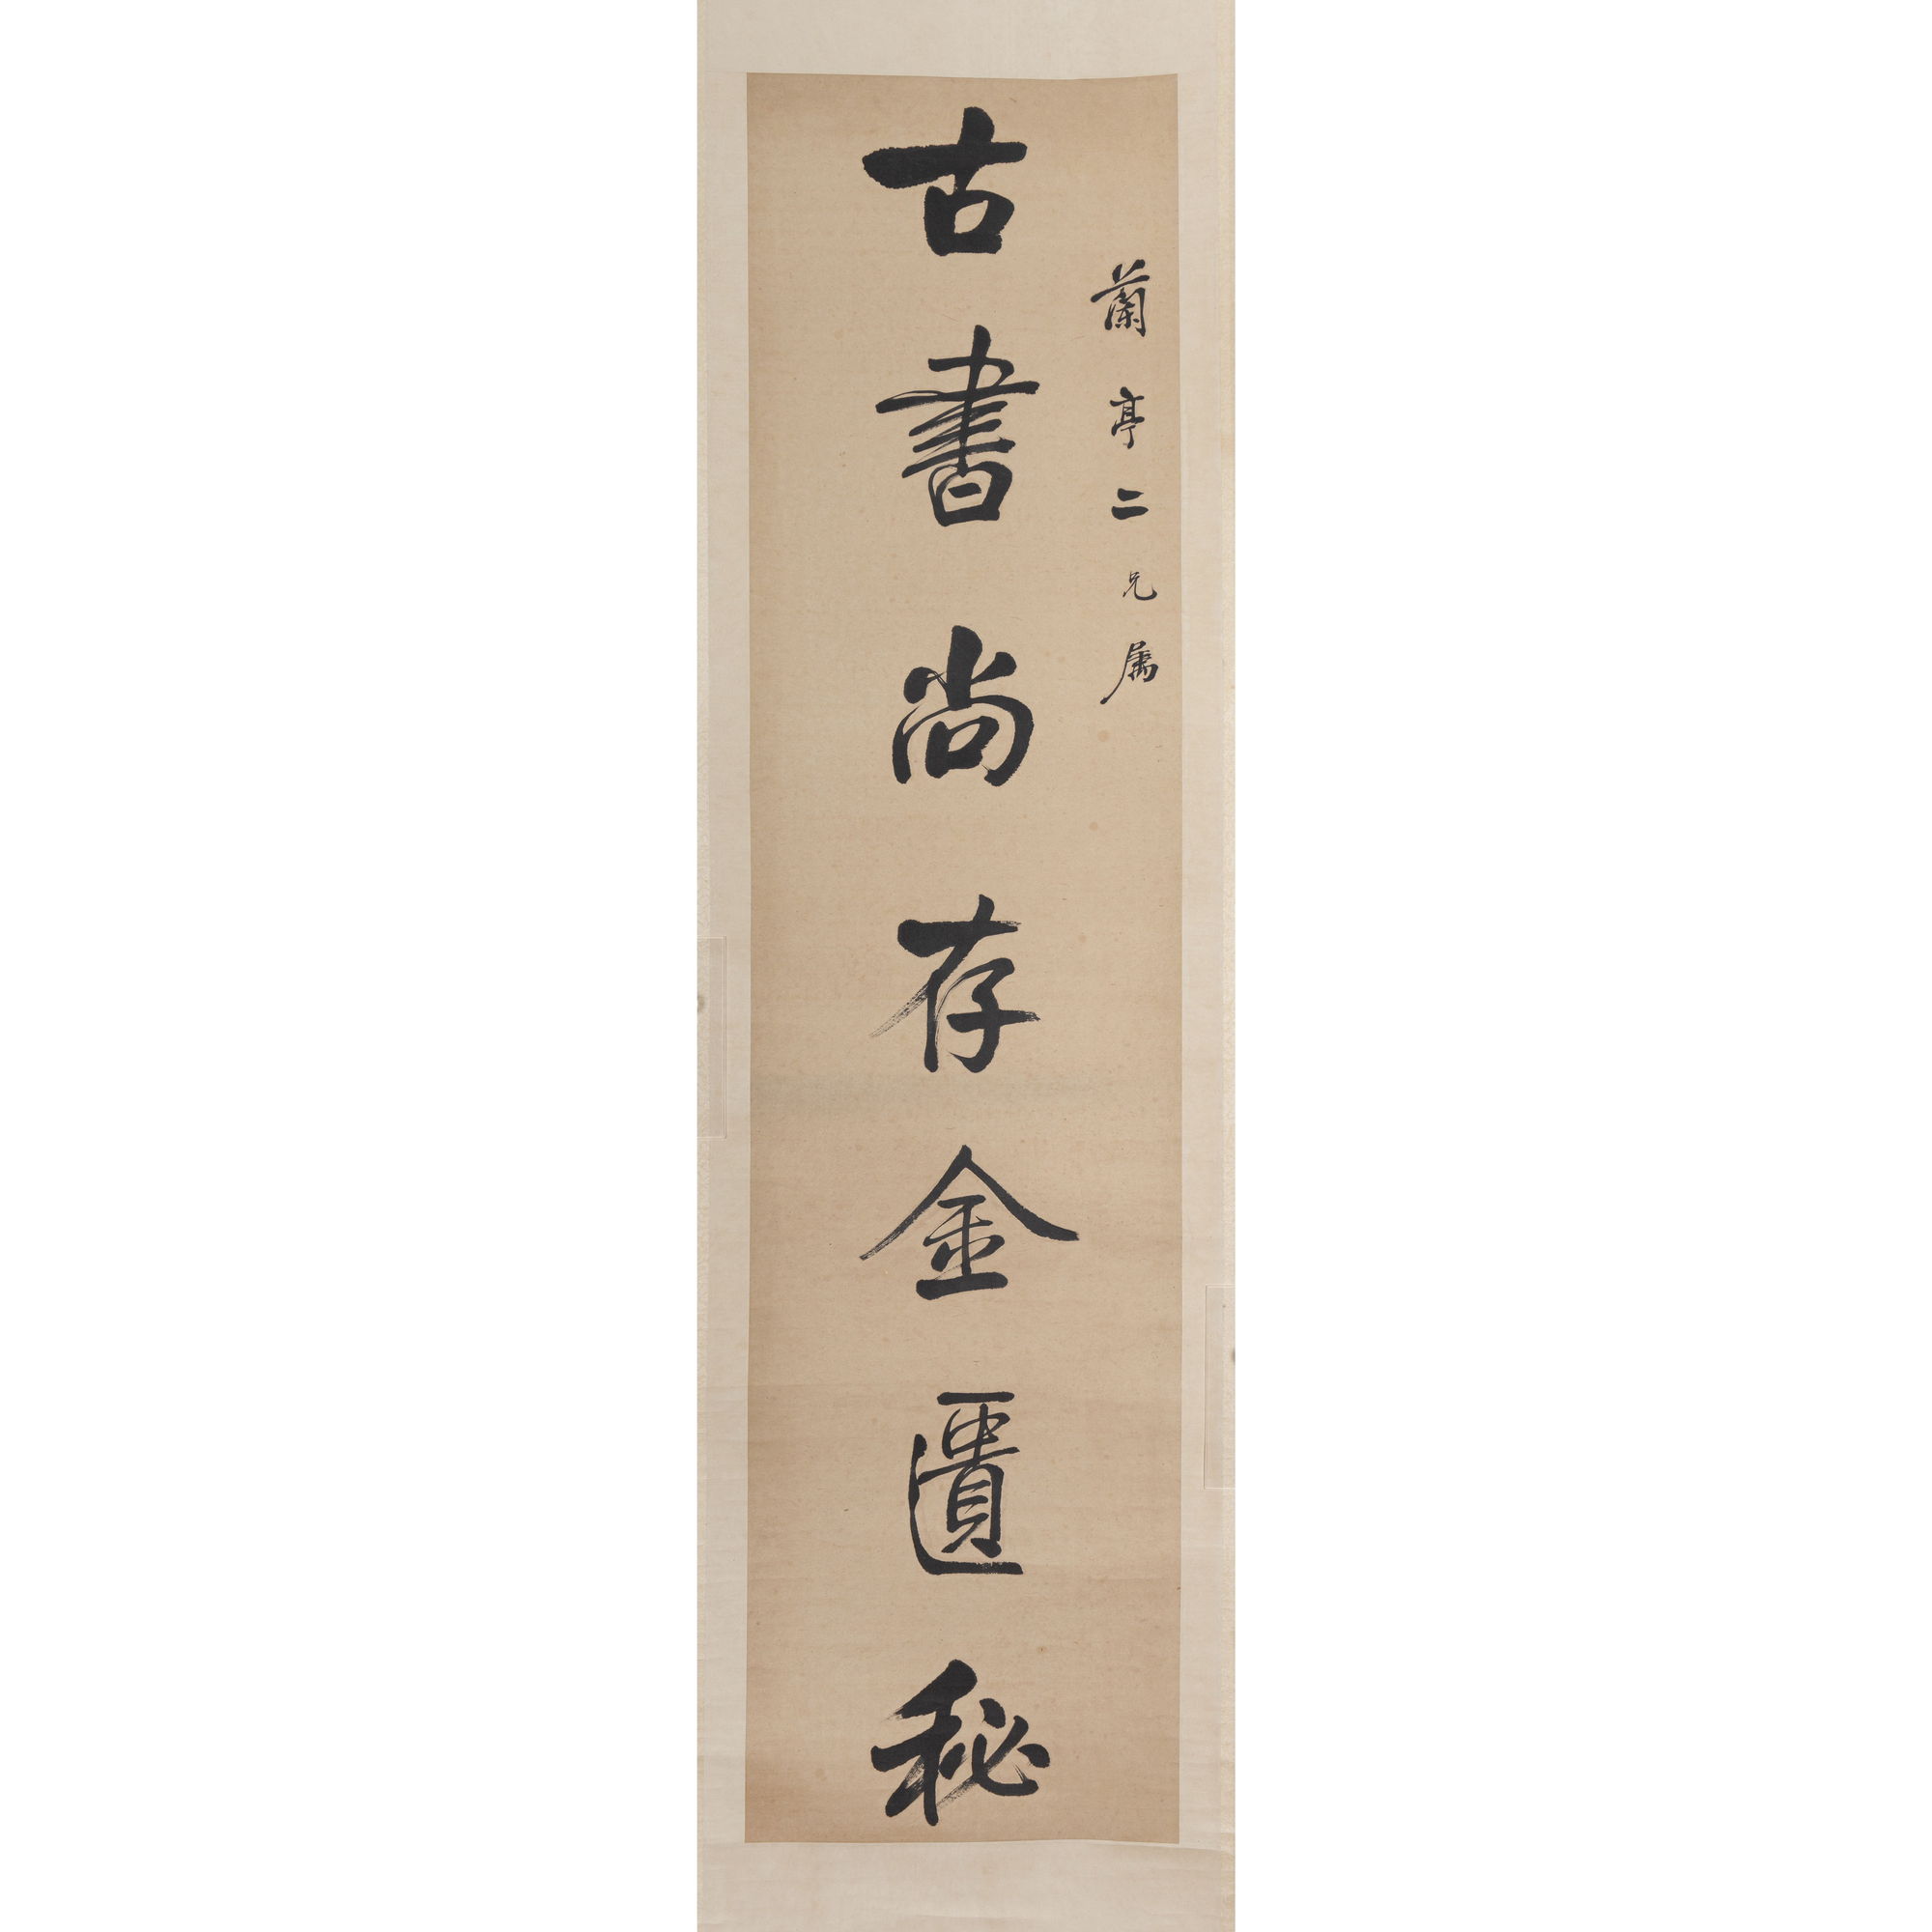 蘭亭二兄属
古書尚存金匱秘